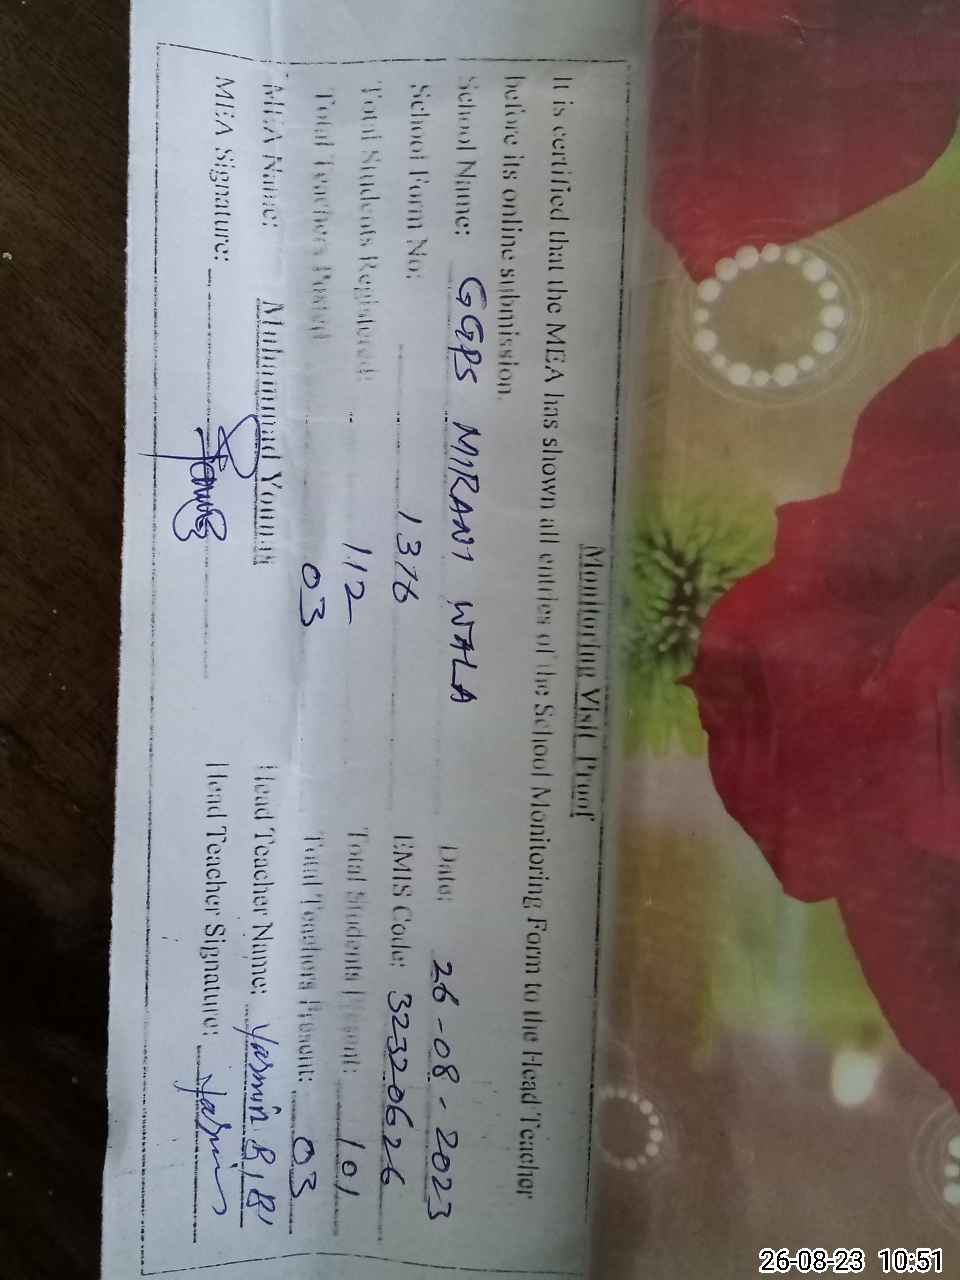 Monitoring Visit Proof
It is certified that the MEA has shown all entries of the School Monitoring Form to the Head Teacher
before its online submission.
School Name: GGPS MIRANI WALA Date: 26-08-2023
School Form No: 1376 EMIS Code: 32320626
Total Students Registered: 112 Total Students Present: 101
Total Teachers Posted 03 Total Teachers Present: 03
MEA Name: Muhammad Younas Head Teacher Name: Yasmin BiBi
MEA Signature: Head Teacher Signature: Yasmin
26-08-23 10:51